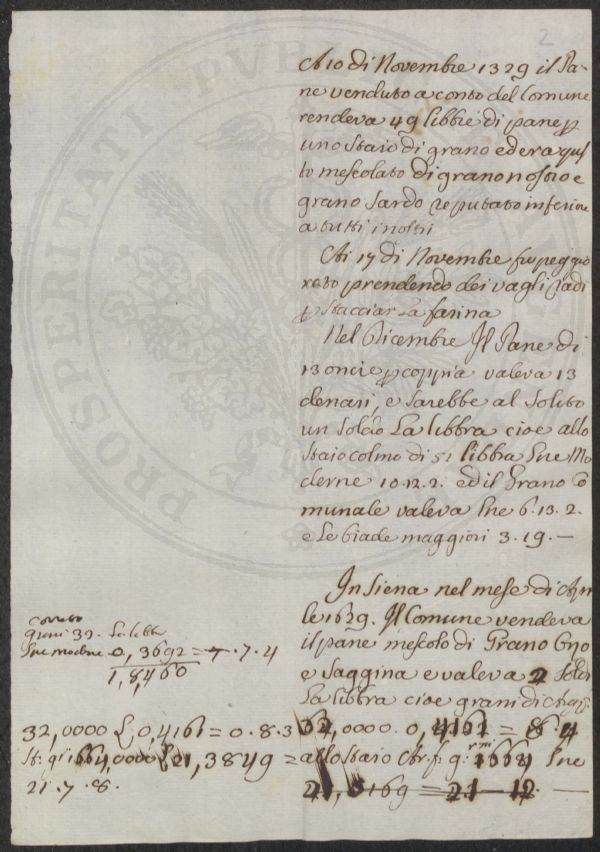 2
A 10 di Novembre 1329 il Pa-
ne venduto a conto del Comune
rendeva 49 libbre di pane p
uno staio di grano ed era ques
to mescolato di grano nostro e
grano Sardo reputato inferiore
a tutti i nostri
Ai 17 di Novembre fu peggio
rato prendendo dei vagli radi
p stacciar la farina
Nel Dicembre Il Pane di
13 oncie p coppia valeva 13
denari, e sarebbe al solito
un soldo La libbra cioe allo
staio colmo di 51 libbra Lire Mo
derne 10.12.2. ed il Grano co
munale valeva Lire 6.13.2.
e Le biade maggiori 3.19.—
In Siena nel mese di
le 1629. Il Comune vendeva
il pane mescolo di Grano
e Saggina e valeva 2 Soldi
La libbra cioe grani di
grani 32. La libb
Lire moderne 0,3692 = 7.4
1,8460
32,0000 0,4161 = 0.8.3
32,0000. 0,4161 =
664,0000 21,3849 =
allo staio 1664 Lire
21.7.8.
21,0169 = 21-12 —